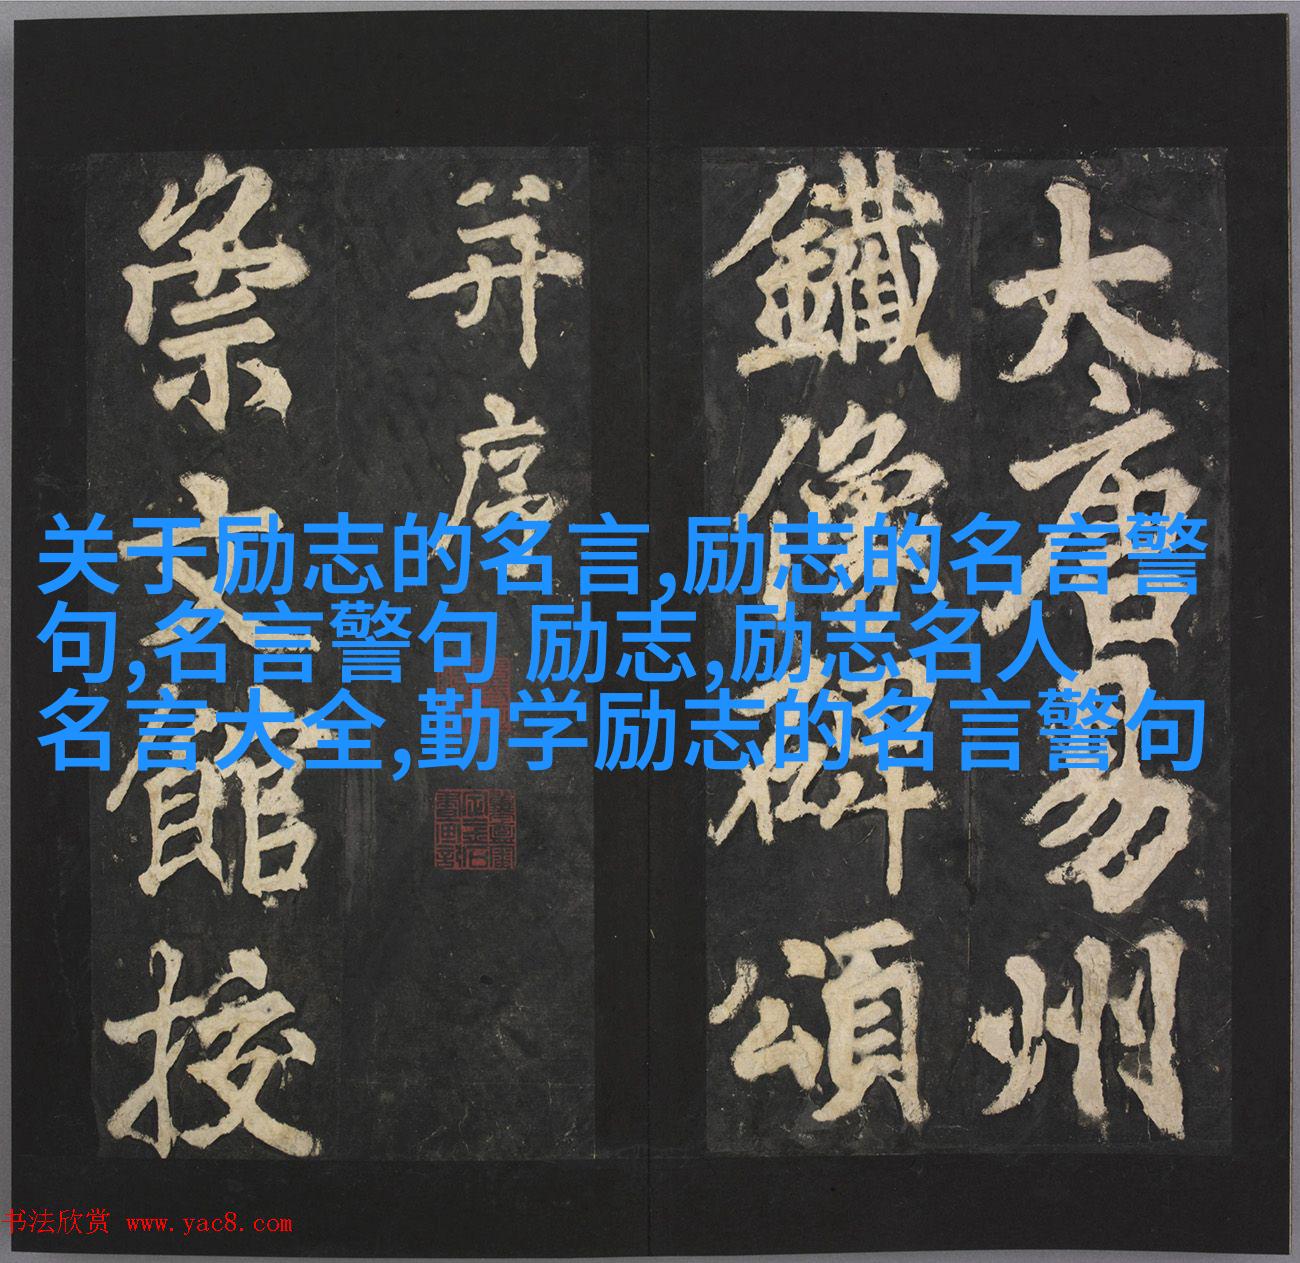 大唐易州
鐵像碑頌
并序
崇文館校
关于励志的名言,励志的名言警
句,名言警句 励志,励志名人
名言大全,勤学励志的名言警句
书法欣赏 www.yac8.com